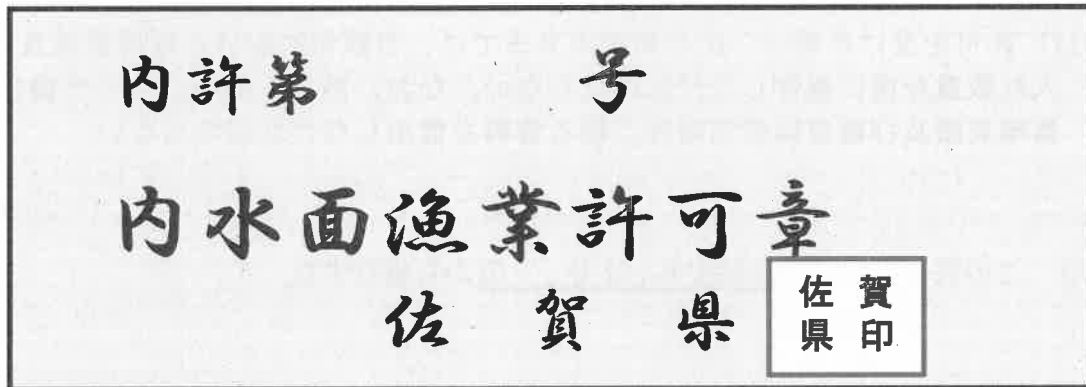 内許第 号
内水面漁業許可章
佐賀県
佐賀
県印